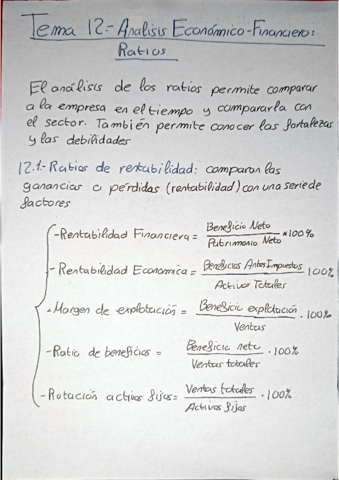 Tema 12.- Analisis Económico-Financiero:
Ratios
El análisis de los ratios permite comparar
a la empresa en el tiempo y compararla con
el sector. También permite conocer las fortalezas
y las debilidades
12.1.- Ratios de rentabilidad: comparan las
ganancias o pérdidas (rentabilidad) con una serie de
factores
-Rentabilidad Financiera = Beneficio Neto / Patrimonio Neto * 100%
-Rentabilidad Economica = Beneficios Antes Impuestos / Activos Totales 100%
-Margen de explotación = Beneficio explotación / Ventas · 100%
-Ratio de beneficios = Beneficio neto / Ventas totales · 100%
-Rotación activos fijos = Ventas totales / Activos fijos · 100%